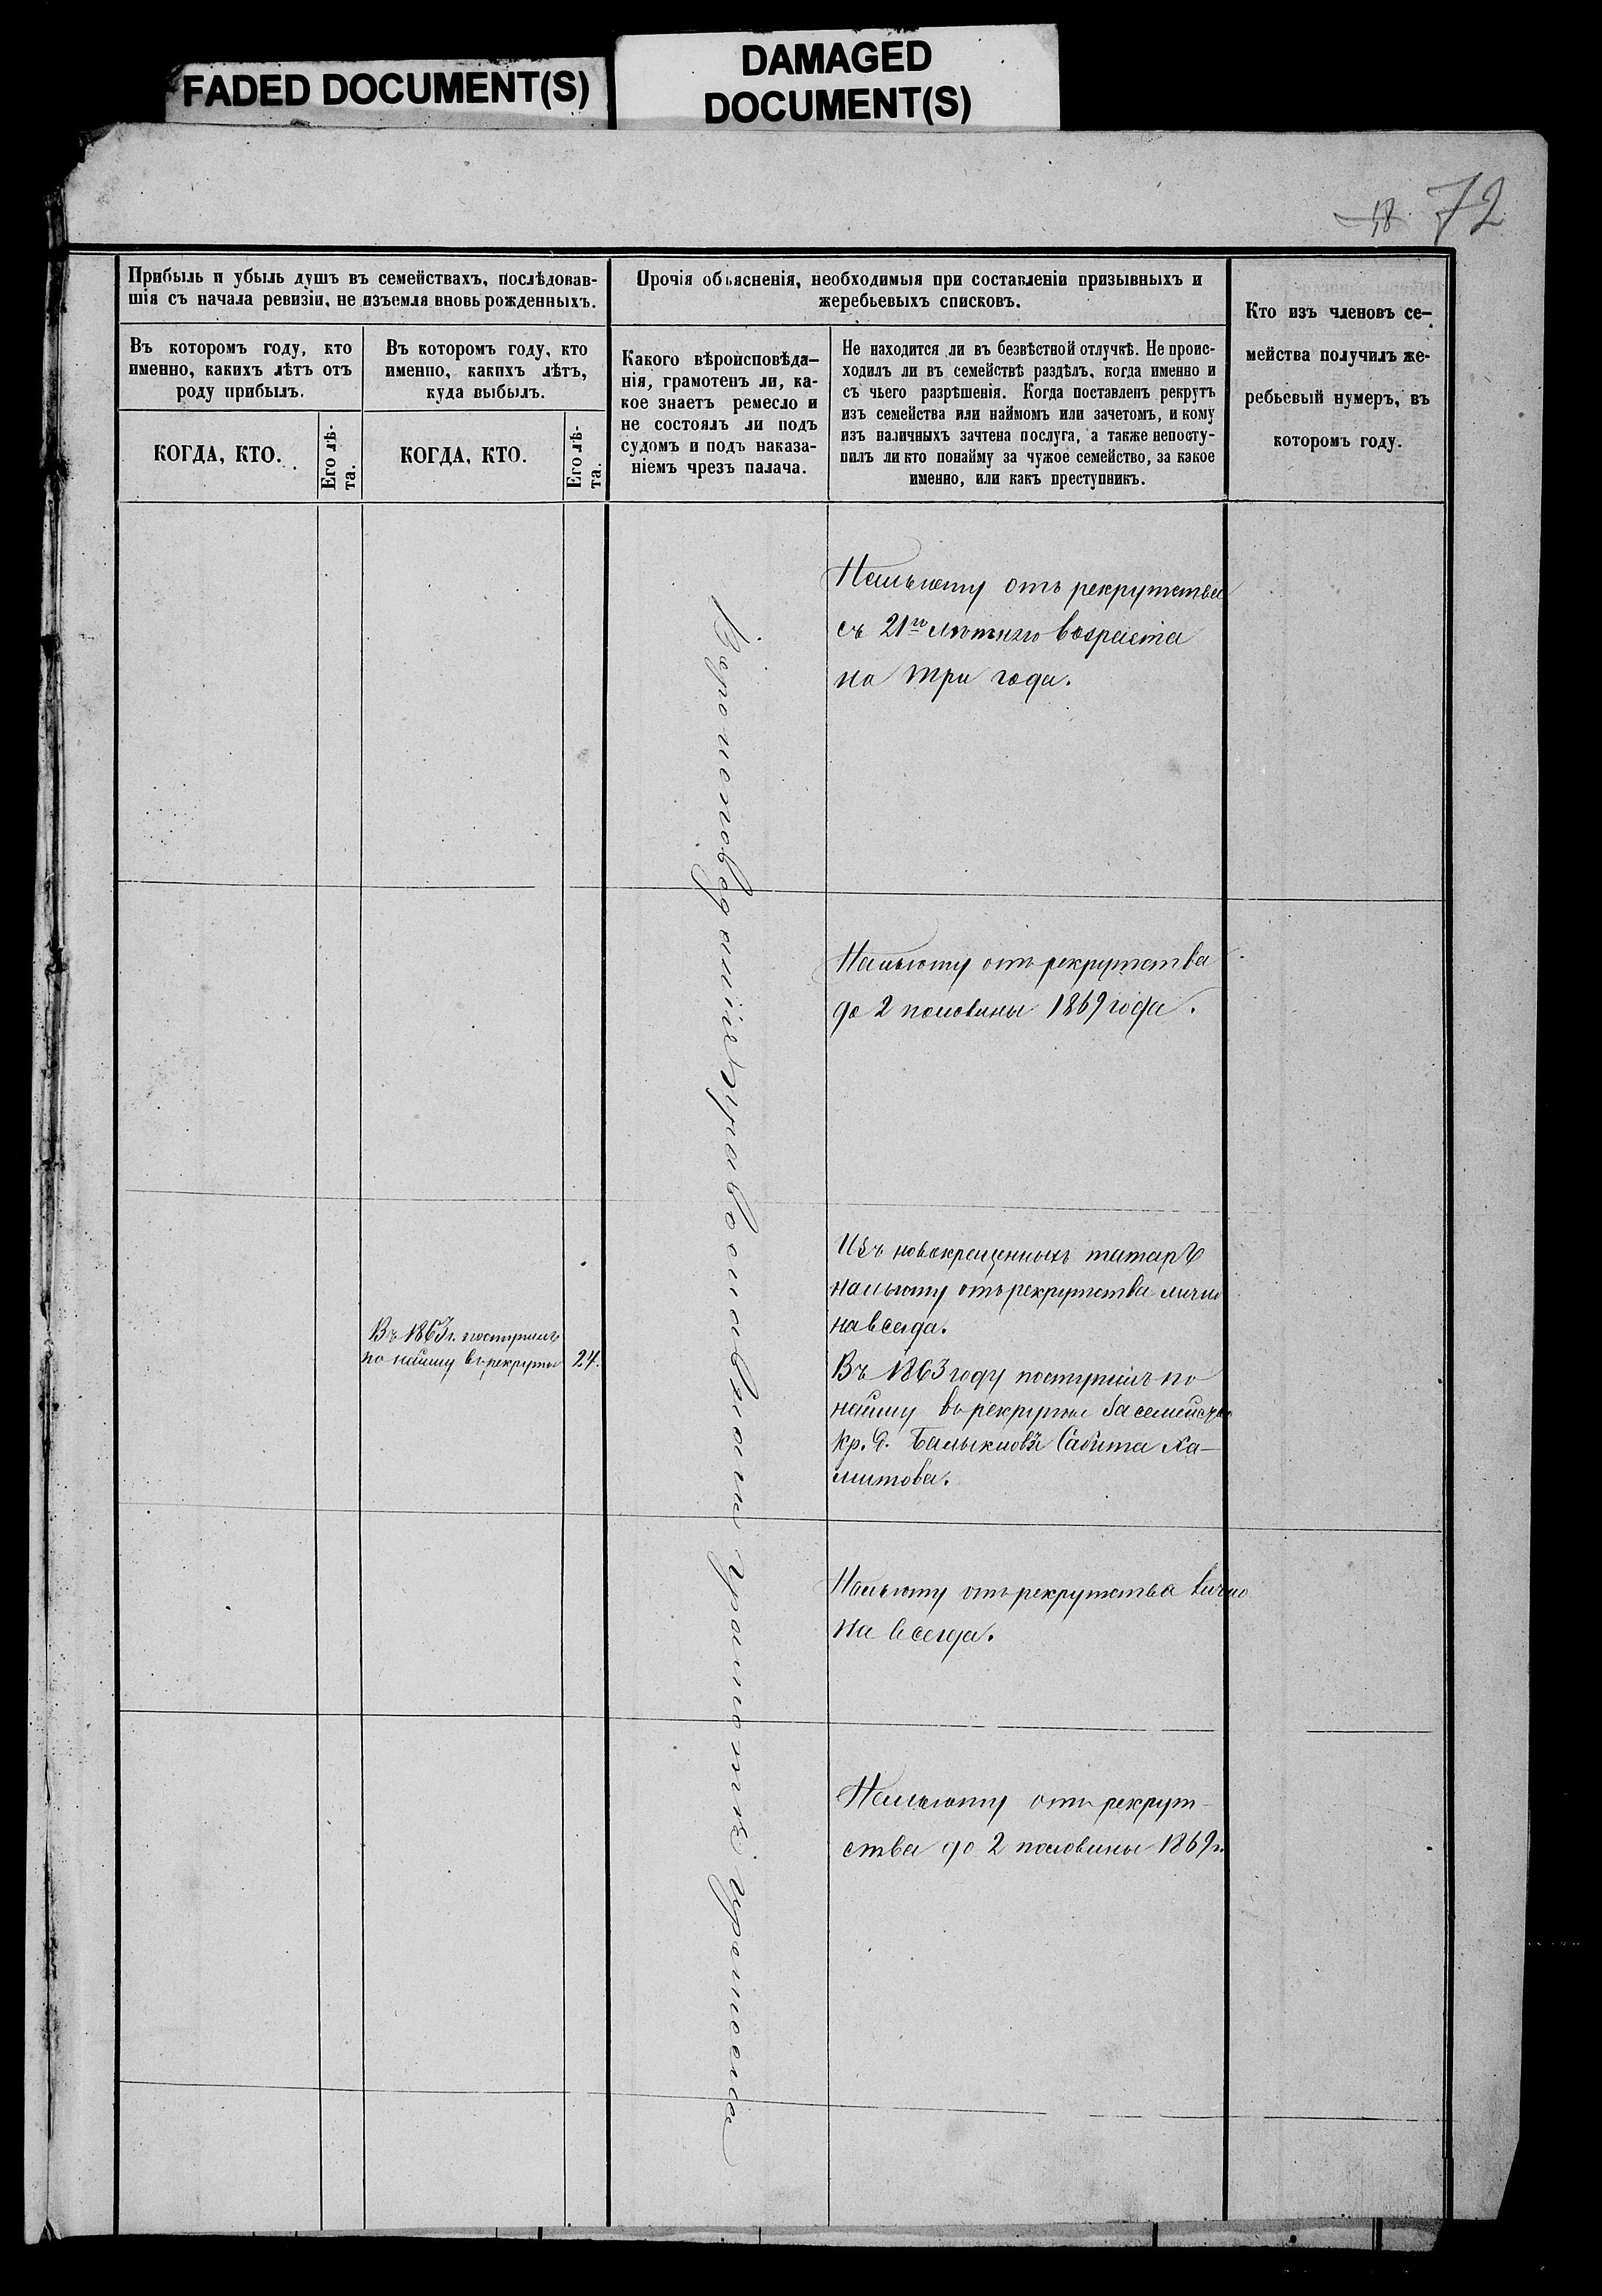 FADED DOCUMENT(S)
DAMAGED
DOCUMENT(S)
18. 72
Прибыль и убыль душъ въ семействахъ, послѣдовав-
шія съ начала ревизіи, не изъемля вновь рожденныхъ.
Въ котором‌ъ году, кто
именно, какихъ лѣтъ отъ
роду прибылъ.
КОГДА, КТО.
Его лѣ-
та.
Въ которомъ году, кто
именно, какихъ лѣтъ,
куда выбылъ.
КОГДА, КТО.
Его лѣ-
та.
Прочія объясненія, необходимыя при составленіи призывныхъ и
жеребьевыхъ списковъ.
Какого вѣроисповѣда-
нія, грамотенъ ли, ка-
кое знаетъ ремесло и
не состоялъ ли подъ
судомъ и подъ наказа-
ніемъ чрезъ палача.
Не находится ли въ безвѣстной отлучкѣ. Не проис-
ходилъ ли въ семействѣ раздѣлъ, когда именно и
съ чьего разрѣшенія. Когда поставленъ рекрутъ
изъ семейства или наймомъ или зачетомъ, и кому
изъ наличныхъ зачтена послуга, а также непосту-
пилъ ли кто понайму за чужое семейство, за какое
именно, или какъ преступникъ.
Кто изъ членовъ се-
мейства получилъ же-
ребьевый нумеръ, въ
которомъ году.
отъ рекрутства
съ 21го лѣтняго возраста
на три года.
отъ рекрутства
до 2 половины 1869 года.
Изъ новокрещенныхъ татаръ
отъ рекрутства лично
навсегда.
Въ 1863 году поступилъ по
найму въ рекруты за семейство
кр. д. Сабита Ха-
митова.
Въ 1863 г. поступилъ
по найму въ рекруты
24.
отъ рекрутства лично
на всегда.
отъ рекрут-
ства до 2 половины 1869 г.
Вероисповеданія